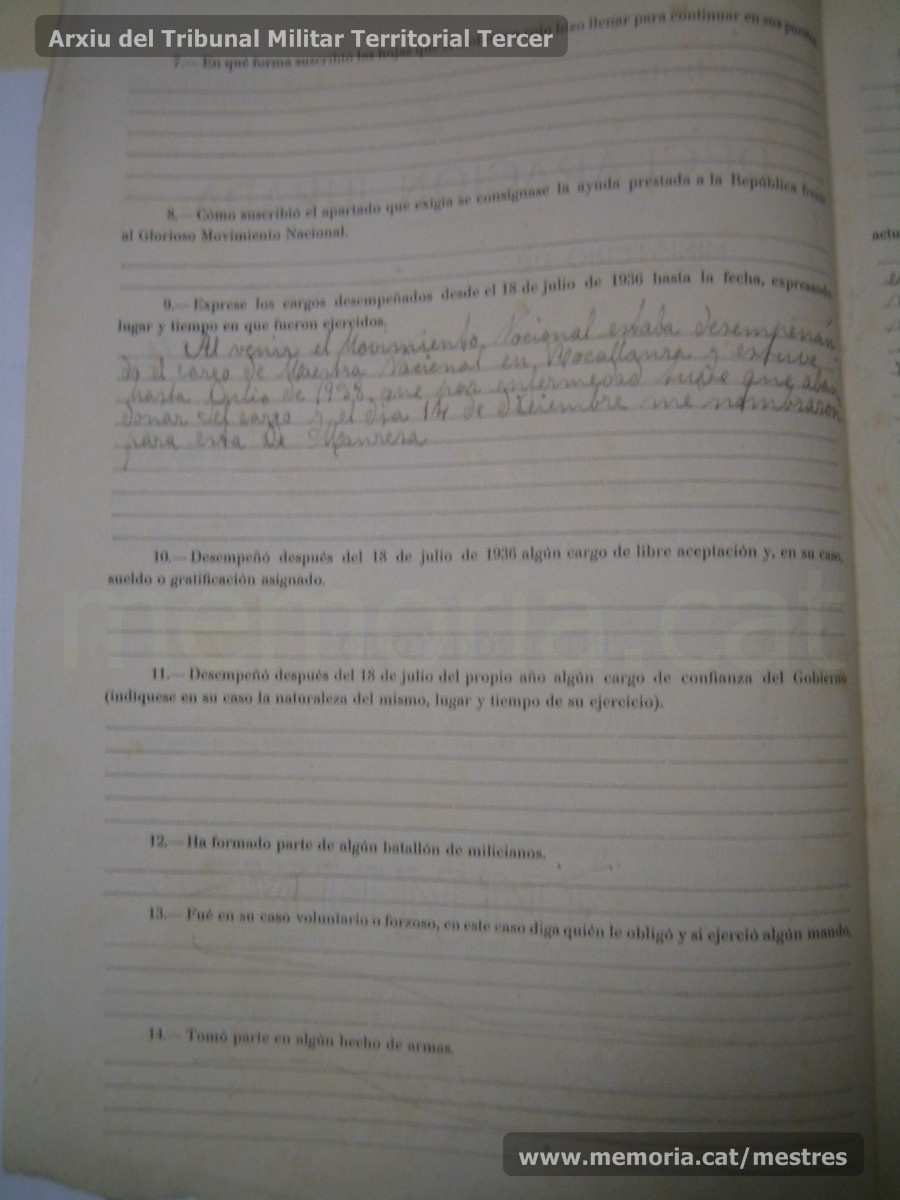 Arxiu del Tribunal Militar Territorial Tercer
7.— En qué forma suscribió las hojas que hizo llenar para continuar en sus puestos
8.— Cómo suscribió el apartado que exigía se consignase la ayuda prestada a la República frente
al Glorioso Movimiento Nacional.
9.— Exprese los cargos desempeñados desde el 18 de julio de 1936 hasta la fecha, expresando
lugar y tiempo en que fueron ejercidos.
Al venir el Movimiento Nacional estaba desempeñan-
do el cargo de Maestra Nacional en y estuve
hasta Julio de 1938, que por enfermedad tuve que aban
donar el cargo y el día 14 de diciembre me nombraron
para esta de Manresa
10.— Desempeñó después del 18 de julio de 1936 algún cargo de libre aceptación y, en su caso,
sueldo o gratificación asignado.
memoria.cat
11.— Desempeñó después del 18 de julio del propio año algún cargo de confianza del Gobierno
(indíquese en su caso la naturaleza del mismo, lugar y tiempo de su ejercicio).
12.— Ha formado parte de algún batallón de milicianos.
13.— Fué en su caso voluntario o forzoso, en este caso diga quién le obligó y si ejerció algún mando.
14.— Tomó parte en algún hecho de armas.
www.memoria.cat/mestres